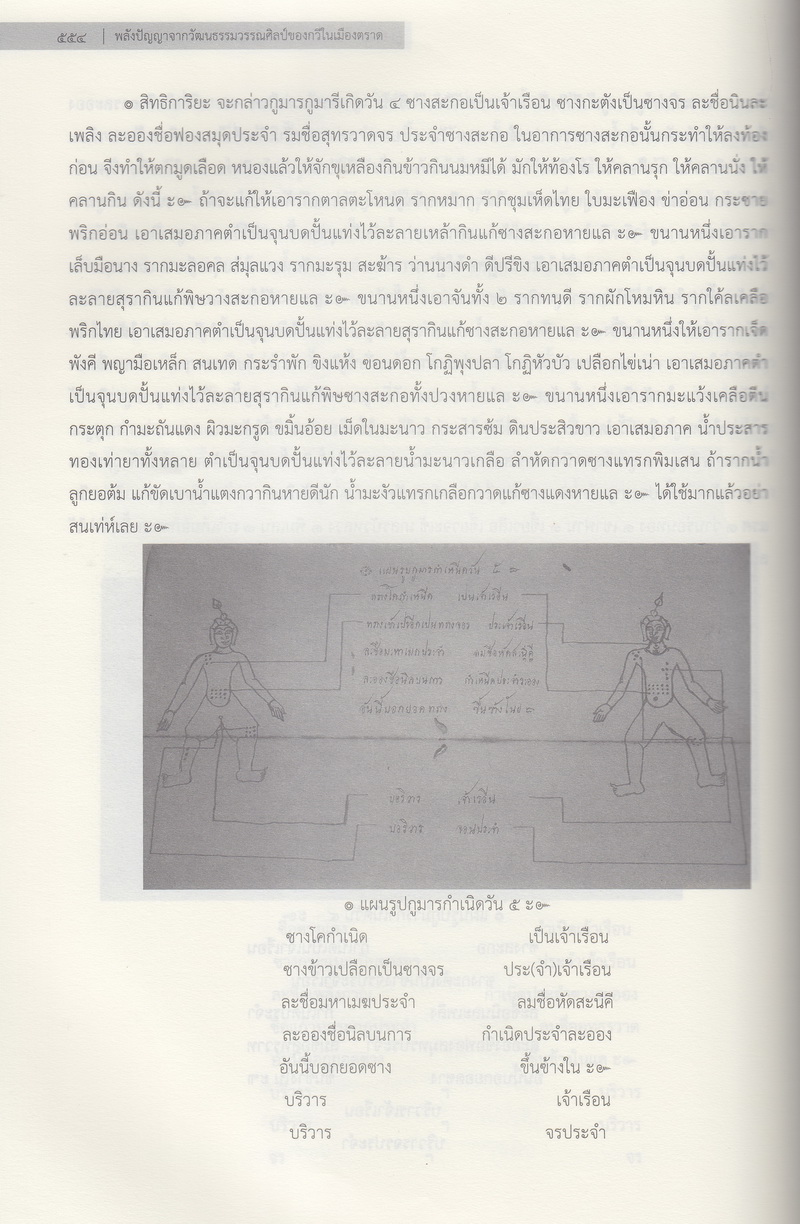 ๕๕๔ | พลังปัญญาจากวัฒนธรรมวรรณศิลป์ของกวีในเมืองตราด
๏ สิทธิการิยะ จะกล่าวกูมารกูมารีเกิดวัน ๔ ซางสะกอเป็นเจ้าเรือน ซางกะตังเป็นซางจร ละชื่อนินละ
เพลิง ละอองชื่อฟองสมุดประจำ รมชื่อสุทรวาดจร ประจำซางสะกอ ในอาการซางสะกอนั้นกระทำให้ลงท้อง
ก่อน จึงทำให้ตกมูดเลือด หนองแล้วให้จักขุเหลืองกินข้าวกินนมหมีได้ มักให้ท้องโร ให้คลานรุก ให้คลานนั่ง ให้
คลานกิน ดังนี้ ะ๛ ถ้าจะแก้ให้เอารากตาลตะโหนด รากหมาก รากชุมเห็ดไทย ใบมะเฟือง ข่าอ่อน กระชาย
พริกอ่อน เอาเสมอภาคตำเป็นจุนบดปั้นแท่งไว้ละลายเหล้ากินแก้ซางสะกอหายแล ะ๛ ขนานหนึ่งเอาราก
เล็บมือนาง รากมะลอคล ส่มุลแวง รากมะรุม สะฆ้าร ว่านนางดำ ดีปรีขิง เอาเสมอภาคตำเป็นจุนบดปั้นแท่งไว้
ละลายสุรากินแก้พิษวางสะกอหายแล ะ๛ ขนานหนึ่งเอาจันทั้ง ๒ รากทนดี รากผักโหมหิน รากใค้ลเคลือ
พริกไทย เอาเสมอภาคตำเป็นจุนบดปั้นแท่งไว้ละลายสุรากินแก้ซางสะกอหายแล ะ๛ ขนานหนึ่งให้เอารากเจ็ด
พังคี พญามือเหล็ก สนเทด กระรำพัก ขิงแห้ง ซอนดอก โกฏิพุงปลา โกฏิหัวบัว เปลือกไข่เน่า เอาเสมอภาคตำ
เป็นจุนบดปั้นแท่งไว้ละลายสุรากินแก้พิษซางสะกอทั้งปวงหายแล ะ๛ ขนานหนึ่งเอารากมะแว้งเคลือตีน
กระตุก กำมะถันแดง ผิวมะกรูด ขมิ้นอ้อย เม็ดในมะนาว กระสารซ้ม ดินประสิวขาว เอาเสมอภาค น้ำประสาร
ทองเท่ายาทั้งหลาย ตำเป็นจุนบดปั้นแท่งไว้ละลายน้ำมะนาวเกลือ ลำหัดกวาดซางแทรกพิมเสน ถ้ารากน้ำ
ลูกยอต้ม แก้ขัดเบาน้ำแตงกวากินหายดีนัก น้ำมะงัวแทรกเกลือกวาดแก้ซางแดงหายแล ะ๛ ได้ใช้มากแล้วอย่า
สนเท่ห์เลย ะ๛
๏ แผนรูปกูมารกำเนิดวัน ๕ ะ๛
ซางโคกำเนิด เป็นเจ้าเรือน
ซางข้าวเปลือกเป็นซางจร ประ(จำ)เจ้าเรือน
ละชื่อมหาเมฆประจำ ลมชื่อหัดสะนีคี
ละอองชื่อนิลบนการ กำเนิดประจำละออง
อันนี้บอกยอดซาง ขึ้นข้างใน ะ๛
บริวาร เจ้าเรือน
บริวาร จรประจำ